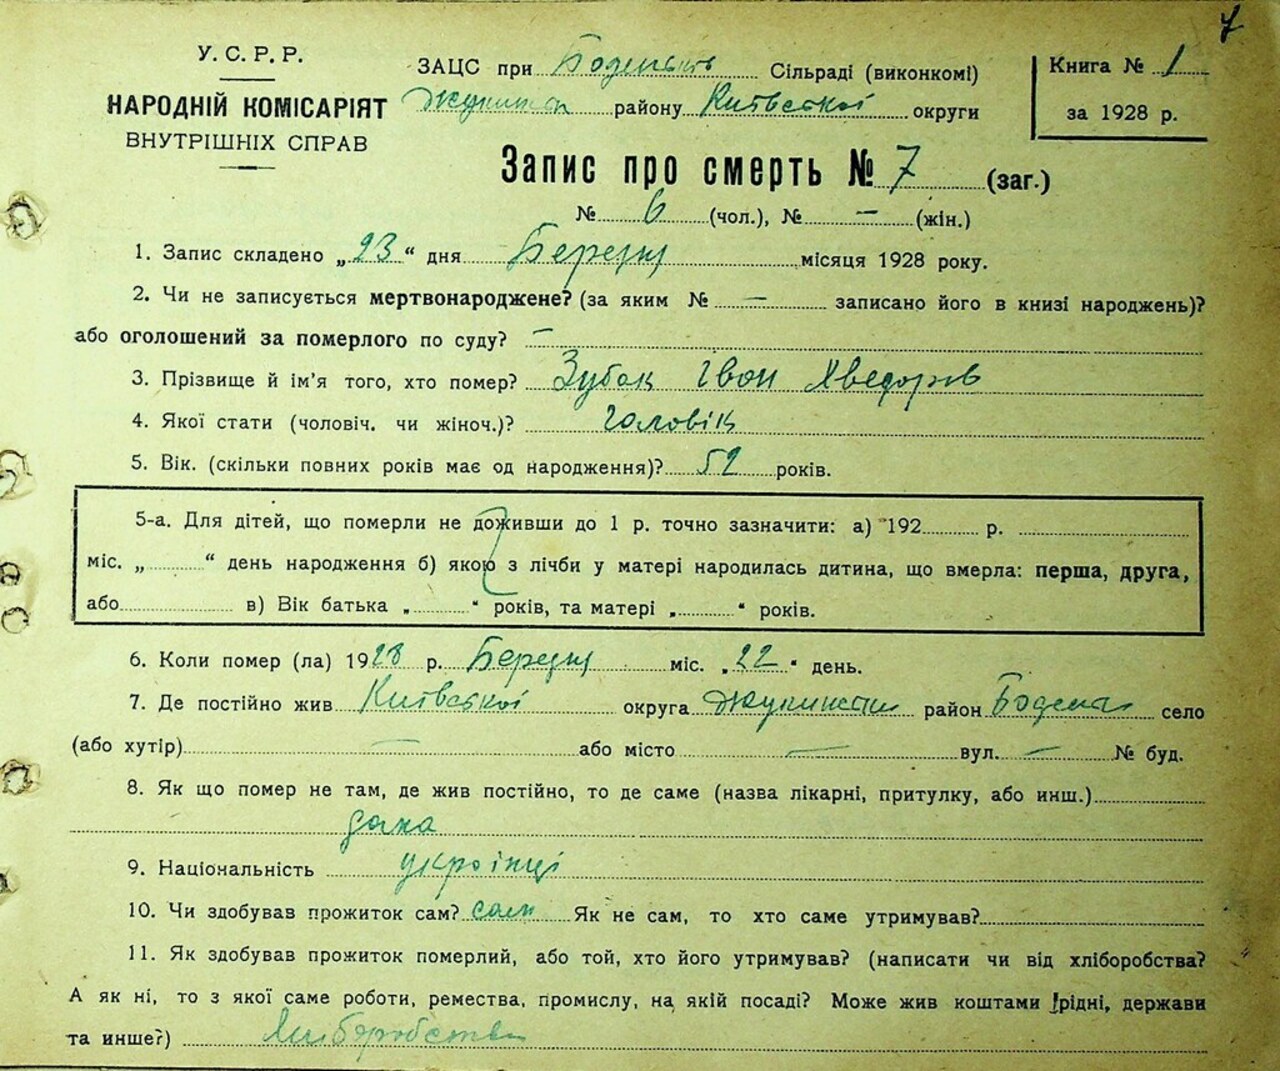 7
У. С. Р. Р.
НАРОДНІЙ КОМІСАРІЯТ
ВНУТРІШНІХ СПРАВ
ЗАЦС при Сільраді (виконкомі)
району Київської округи
Книга № 1
за 1928 р.
Запис про смерть № 7 (заг.)
№ 6 (чол.), № — (жін.)
1. Запис складено „23“ дня Березня місяця 1928 року.
2. Чи не записується мертвонароджене? (за яким № — записано його в книзі народжень)?
або оголошений за померлого по суду? —
3. Прізвище й ім'я того, хто помер? Зубак Іван Хведорів
4. Якої стати (чоловіч. чи жіноч.)? чоловік
5. Вік. (скільки повних років має од народження)? 52 років.
5-а. Для дітей, що померли не доживши до 1 р. точно зазначити: а) 192 р.
міс. „ “ день народження б) якою з лічби у матері народилась дитина, що вмерла: перша, друга,
або в) Вік батька „ “ років, та матері „ “ років.
6. Коли помер (ла) 1928 р. Березня міс. „22“ день.
7. Де постійно жив Київської округа район село
(або хутір) — або місто — вул. — № буд.
8. Як що помер не там, де жив постійно, то де саме (назва лікарні, притулку, або инш.)
дома
9. Національність українці
10. Чи здобував прожиток сам? сам Як не сам, то хто саме утримував?
11. Як здобував прожиток померлий, або той, хто його утримував? (написати чи від хліборобства?
А як ні, то з якої саме роботи, ремества, промислу, на якій посаді? Може жив коштами рідні, держави
та инше?)